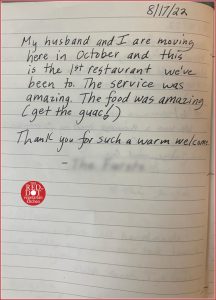 8/17/22
My husband and I are moving
here in October and this
is the 1st restaurant we've
been to. The service was
amazing. The food was amazing
(get the guac!)
Thank you for such a warm welcome.
-
RED
DOT